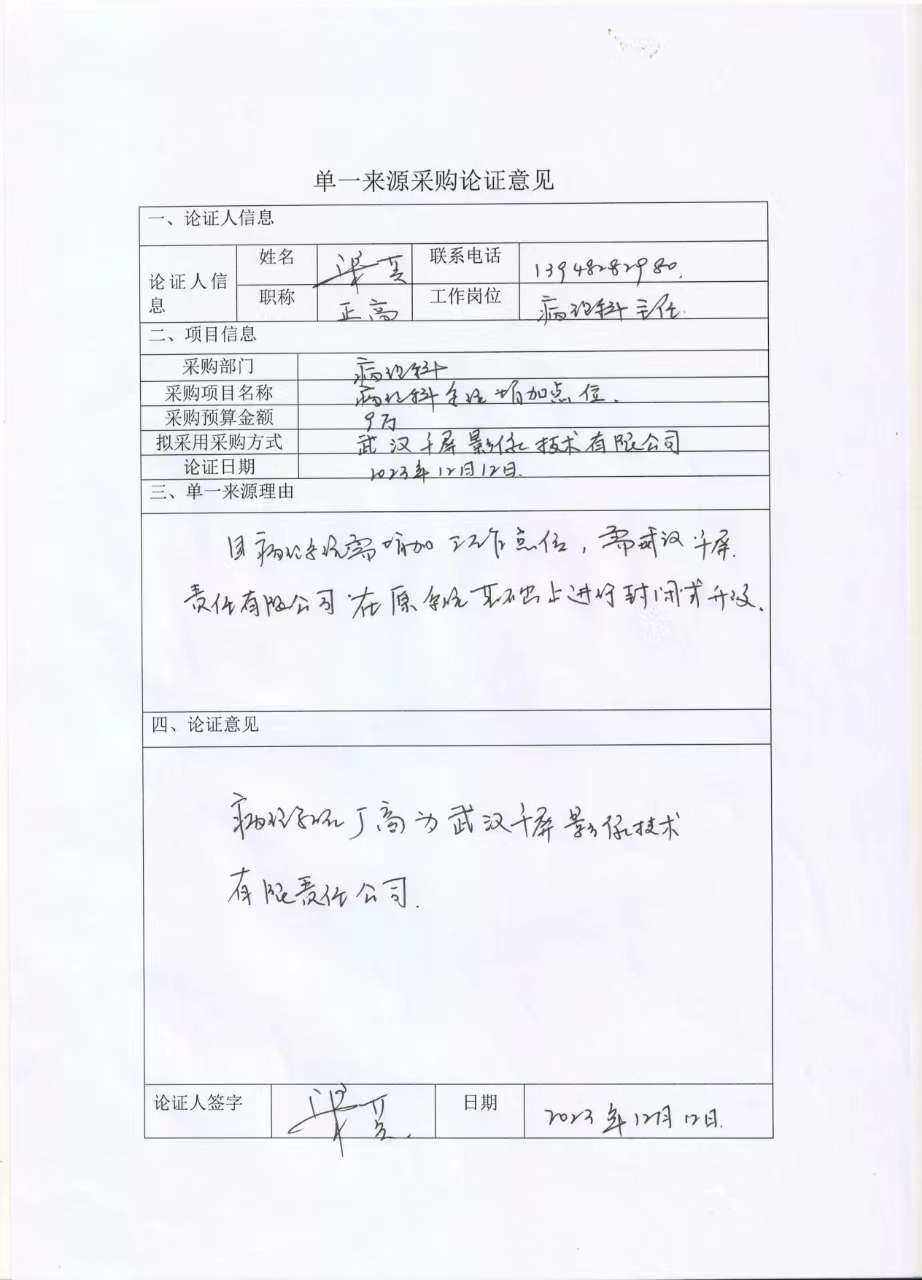 单一来源采购论证意见
一、论证人信息
论证人信息 姓名 梁 联系电话 13948282980.
职称 正高 工作岗位 病理科主任
二、项目信息
采购部门 病理科
采购项目名称 病理科系统增加点位.
采购预算金额 9万
拟采用采购方式 武汉千屏影像技术有限公司
论证日期 2023年12月12日.
三、单一来源理由
因病理系统需增加工作点位，需武汉千屏
责任有限公司在原系统基础上进行封闭式开发.
四、论证意见
病理系统厂商为武汉千屏影像技术
有限责任公司.
论证人签字 梁 日期 2023年12月12日.